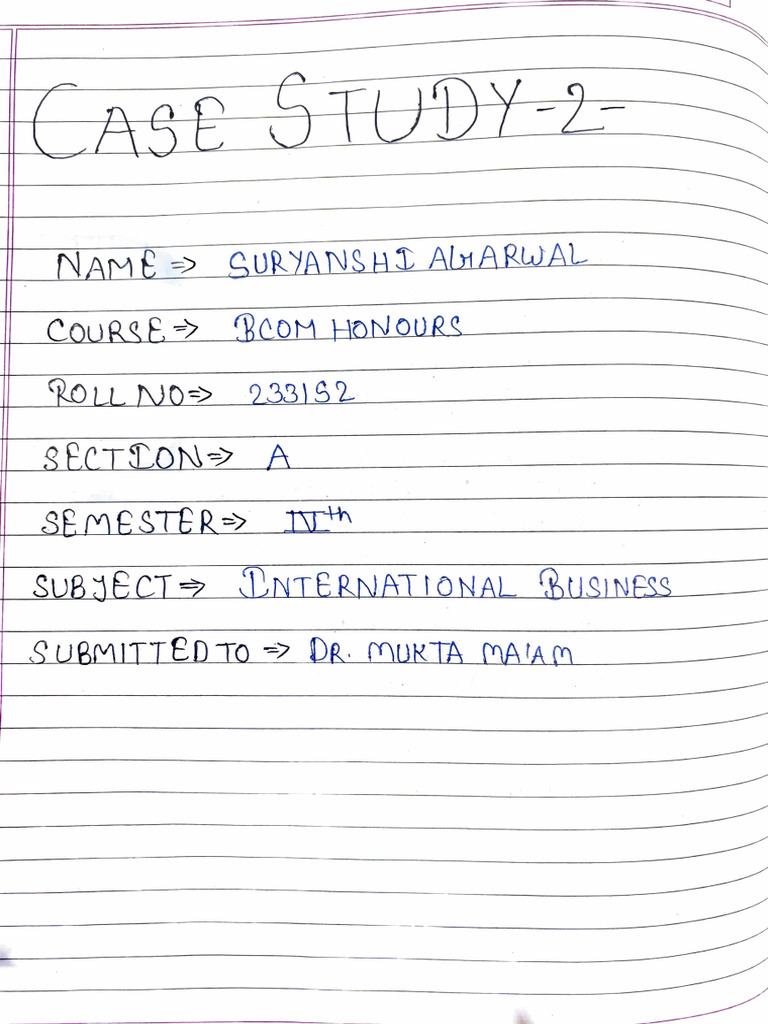 CASE STUDY-2-
NAME => SURYANSHI AGARWAL
COURSE => BCOM HONOURS
ROLL NO => 233152
SECTION => A
SEMESTER => IVth
SUBJECT => INTERNATIONAL BUSINESS
SUBMITTED TO => DR. MUKTA MA'AM